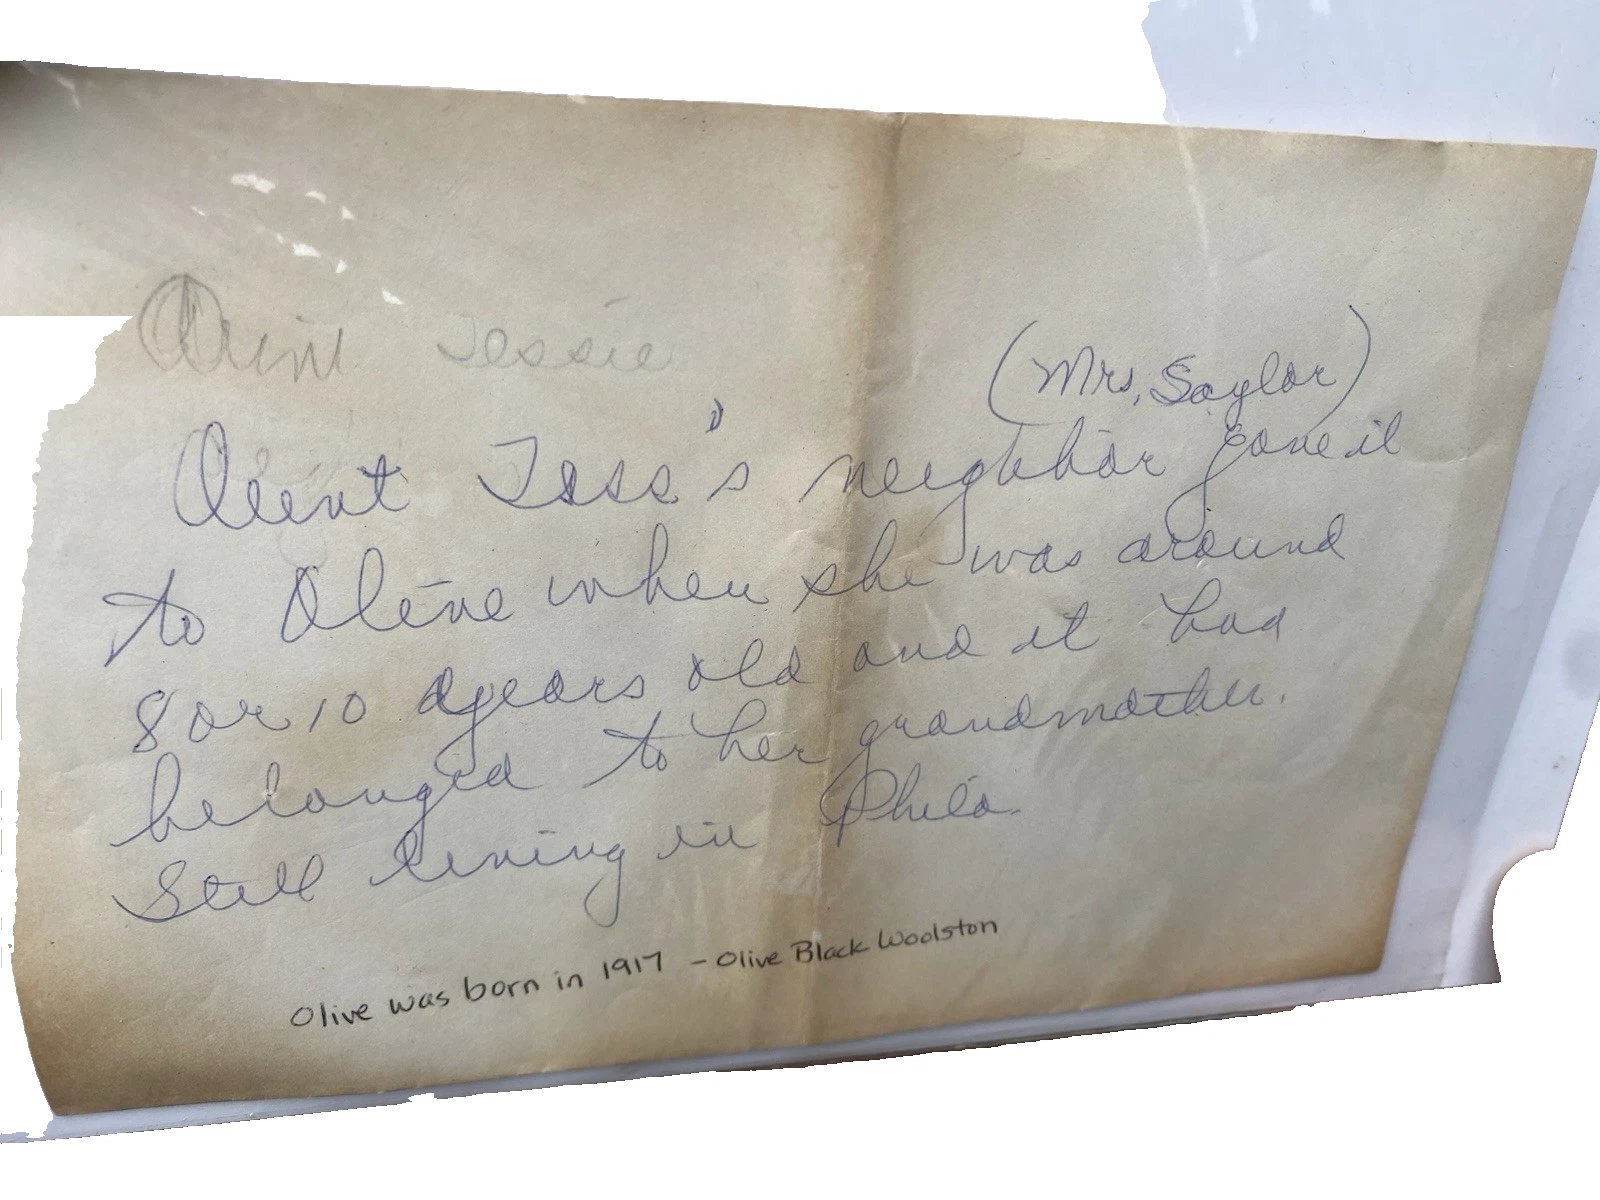 Aunt Jessie
(Mrs. Saylor)
Aunt Jess's neighbor gave it
to Olive when she was around
8 or 10 years old and it had
belonged to her grandmother.
Still living in Phila.
Olive was born in 1917 - Olive Black Woolston